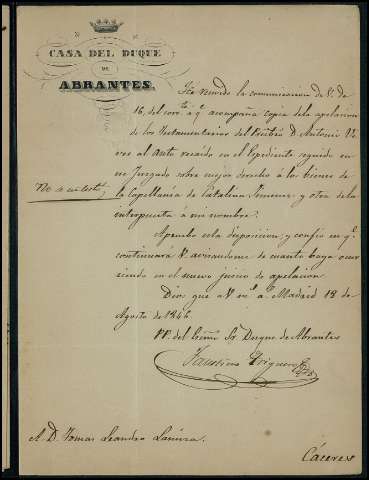 CASA DEL DUQUE
DE
ABRANTES.
He recivido la comunicacion de V. de
16, del corrte. a q.e acompaña copia de la apelacion
de los Testamentarios del Pbro. D. Antonio
al Auto recaido en el Expediente seguido en
ese Juzgado sobre mejor derecho á los bienes de
la Capellania de Catalina Jimenez, y otra de la
interpuesta á mi nombre.
No se contestó
Apruebo esta disposicion, y confio en q.e
continuará V. avisandome de cuanto baya ocur
riendo en el nuevo juicio de apelacion.
Dios gue. a V. m.s a.s Madrid 18 de
Agosto de 1846
P.P. del Exmo. Sr. Duque de Abrantes
Faustino
A D. Tomas Leandro
Cáceres